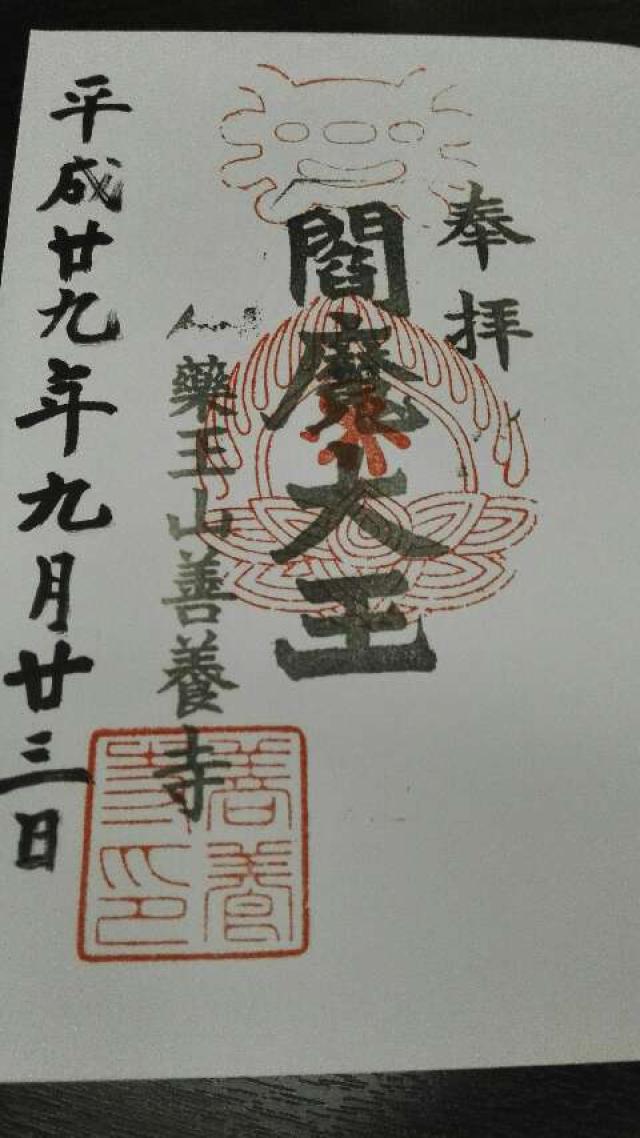 奉拝
閻魔大王
藥王山善養寺
善養
寺印
平成廿九年九月廿三日